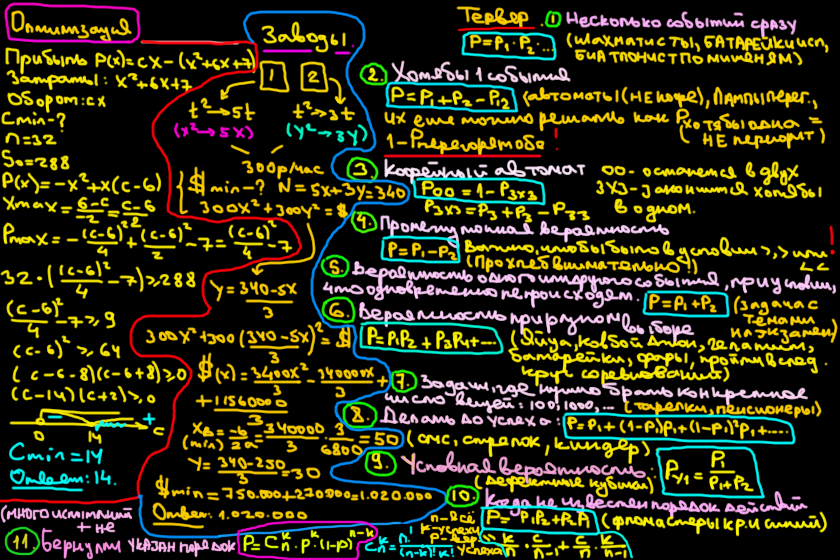 Оптимизация
Прибыль P(x)=cx-(x²+6x+7)
Затраты: x²+6x+7
Оборот: cx
Cmin-?
n=32
S₀=288
P(x)=-x²+x(c-6)
Xmax=\frac{6-c}{-2}=\frac{c-6}{2}
Pmax=-\frac{(c-6)²}{4}+\frac{(c-6)²}{2}-7=\frac{(c-6)²}{4}-7
32·(\frac{(c-6)²}{4}-7)≥288
\frac{(c-6)²}{4}-7≥9
(c-6)²≥64
(c-6-8)(c-6+8)≥0
(c-14)(c+2)≥0
0 14 c
Cmin=14
Ответ: 14.
Заводы.
1 2
t²→5t t²→3t
(x²→5x) (y²→3y)
300р/час
$min-? N=5x+3y=340
300x²+300y²=$
y=\frac{340-5x}{3}
300x²+300(\frac{340-5x}{3})²=$
$(x)=\frac{3400x²}{3}-\frac{340000x}{3}+
+\frac{11560000}{3}
Xв(min)=\frac{-b}{2a}=\frac{340000}{3}·\frac{3}{6800}=50
y=\frac{340-250}{3}=30
$min=750.000+270.000=1.020.000
Ответ: 1.020.000
Тервер
1 Несколько событий сразу
P=P₁·P₂·... (шахматисты, батарейки исп, биатлонист по мишеням)
2. Хотя бы 1 событие
P=P₁+P₂-P₁₂ (автоматы (не кофе), лампы перег.,
их ещё можно решать как
1-Pперегорят оба! (хотя бы одна = не перегорит)
3. Кофейный автомат
P00=1-P3х3 00-останется в двух
P3х3=P₃+P₃-P₃₃ 3х3-закончится хотя бы в одном.
4. Промежуточная вероятность
P=P₁-P₂ Важно, чтобы было в условии >,> или <<!
(Прочлбвнимательно!)
5. Вероятность одного и другого события, при условии,
что одновременно не происходят. P=P₁+P₂ (задача с темами на экзамен)
6. Вероятность при разном выборе
P=P₁P₂+P₃P₄+... (яйца, ковбой Джон, гепатит,
батарейки, фары,
круг соревнований)
7. Задачи, где нужно брать конкретное
число вещей: 100, 1000,... (тарелки, пенсионеры)
8. Делать до успеха: P=P₁+(1-P₁)P₁+(1-P₁)²P₁+....
(смс, стрелок, киндер)
9. Условная вероятность: Pу₁=\frac{P₁}{P₁+P₂}
(дефектные кубики)
10. Когда не известен порядок действий
P=P₁P₂+P₂P₁ (фломастеры кр. и синий)
(много испытаний + не указан порядок
11. Бернулли P=Cₙᵏ·pᵏ(1-p)ⁿ⁻ᵏ
Cₙᵏ=\frac{n!}{(n-k)!·k!} n-всё
k-успехи
\frac{k}{n}·\frac{c}{n-1}+\frac{c}{n}·\frac{k}{n-1}